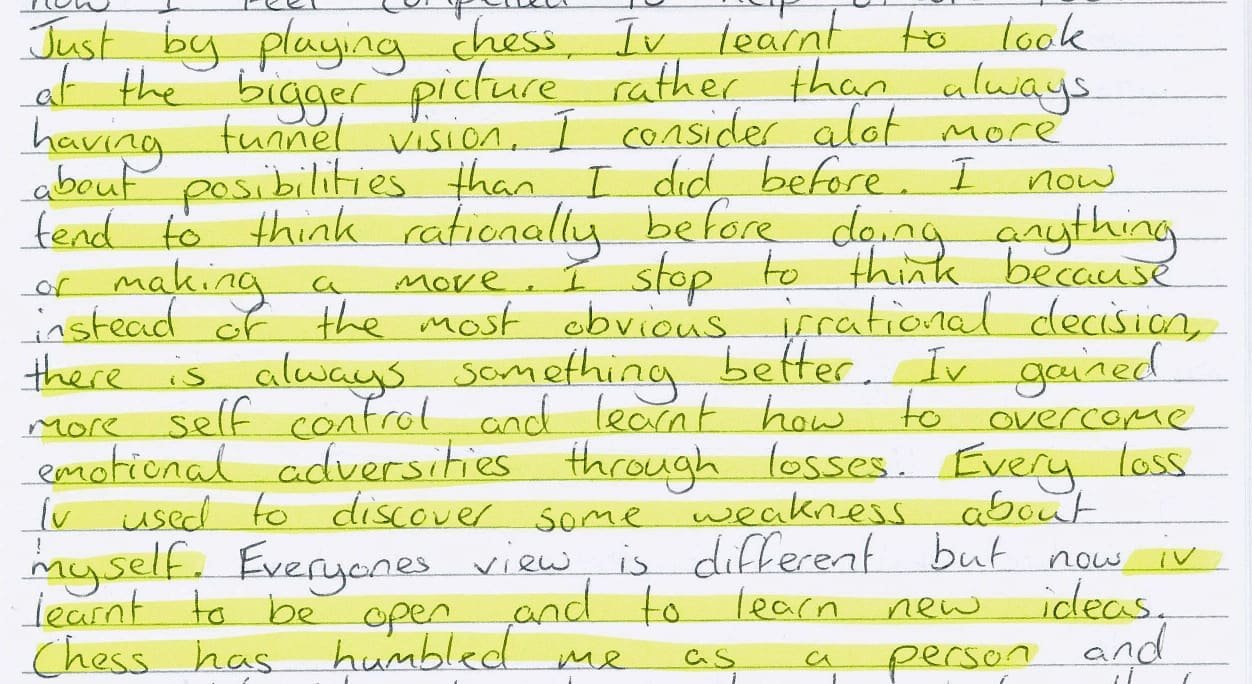 now I feel compelled to help
Just by playing chess, Iv learnt to look
at the bigger picture rather than always
having tunnel vision. I consider alot more
about posibilities than I did before. I now
tend to think rationally before doing anything
or making a move. I stop to think because
instead of the most obvious irrational decision,
there is always something better. Iv gained
more self control and learnt how to overcome
emotional adversities through losses. Every loss
Iv used to discover some weakness about
myself. Everyones view is different but now iv
learnt to be open and to learn new ideas.
Chess has humbled me as a person and